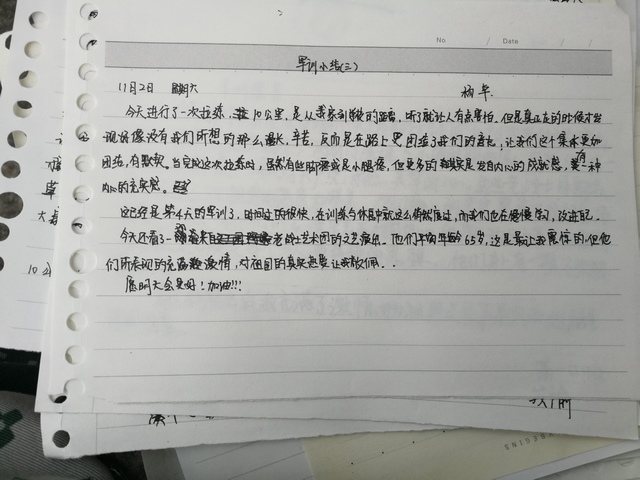 No / Date /
军训小结(三)
11月2日 星期六 杨华
今天进行了一次拉练, 10公里,是从我家到学校的距离,听了就让人有点害怕。但是真正走的时候才发
现好像没有我们所想的那么漫长,辛苦,反而是在路上更团结了我们的意志,让我们这个集体更加
团结,有默契。当完成这次拉练时,虽然有些脚酸或是小腿疼,但更多的是发自内心的成就感,有一种
内心的充实感。
这已经是第4天的军训了,时间过的很快,在训练与休息中就这么悄然度过,而我们也在慢慢学习,改进自己。
今天还看了一 老战士艺术团的文艺演出。他们平均年龄65岁,这是最让我震惊的,但他
们所表现的充满激情,对祖国的真实热爱让我敬佩..
愿明天会更好!加油!!!
10公